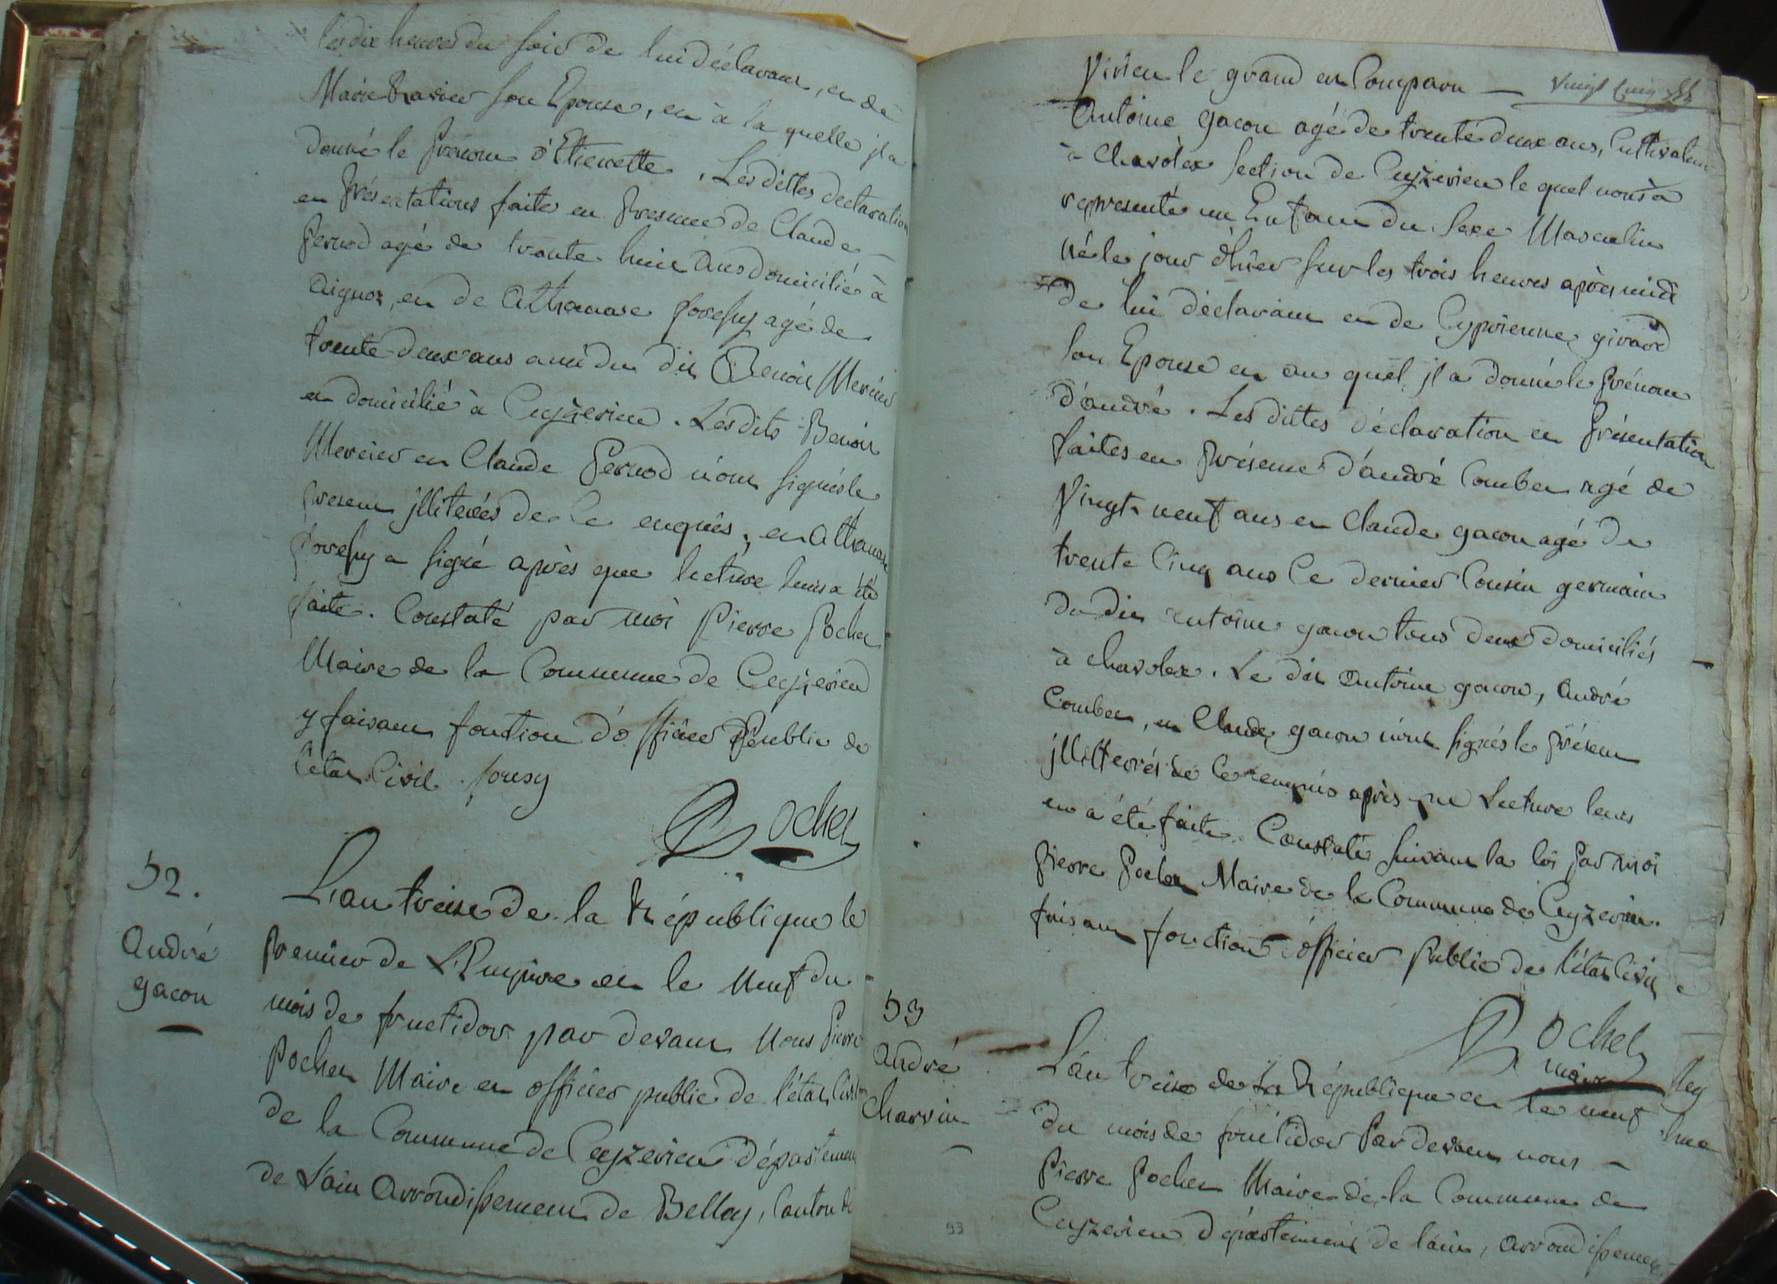 les dix heures du soir de lui déclarant, et de
Marie Ravier son Epouse, et à la quelle il a
donné le prénom d'Etienette. Les dittes déclaration
et présentations faite en presence de Claude
Pernod agé de trente huit ans domicilié à
aignoz, et de Athanase
agé de
trente deux ans ami du dit Benoit Mercier
et domicilié à Ceyzerieu. Les dits Benoit
Mercier et Claude Pernod n'ont signés le
present illiterés de ce enquis, et Athanase
a signé après que lecture leurs a été
faite. Constaté par moi Pierre Pochet
Maire de la Commune de Ceyzerieu
y faisant fonction d'officier Public de
l'état Civil.
Pochet
52.
André
gacon
L'an treize de la République le
premier de L'Empire et le neuf du
mois de fructidor par devant Nous Pierre
Pochet Maire et officier public de l'état Civil
de la Commune de Ceyzerieu département
de L'ain arrondissement de Belley, Canton de
Virieu le grand est Comparu
Vingt Cinq
Antoine gacon agé de trente deux ans, Cultivateur
à Chavolex Section de Ceyzerieu le quel nous a
représenté un Enfant du Sexe Masculin
né le jour d'hier sur les trois heures après midi
de lui déclarant et de Cyprienne girard
son Epouse et au quel il a donné le prénom
d'andré. Les dittes déclaration et présentation
faites en présence d'andré Combet agé de
Vingt neuf ans et Claude gacon agé de
trente Cinq ans Ce dernier Cousin germain
du dit antoine gacon tous deux domiciliés
à Chavolex. Le dit Antoine gacon, André
Combet, et Claude gacon n'ont signés le présent
illitterés de ce enquis après que Lecture leurs
en a été faite. Constaté suivant la loi par moi
Pierre Pochet Maire de la Commune de Ceyzerieu
faisant fonction officier public de l'état Civil
Pochet
maire
53
André
Charvin
L'an treize de la République et le neuf
du mois de fructidor Par devant nous
Pierre Pochet Maire de la Commune de
Ceyzerieu département de l'ain, arrondissement
93